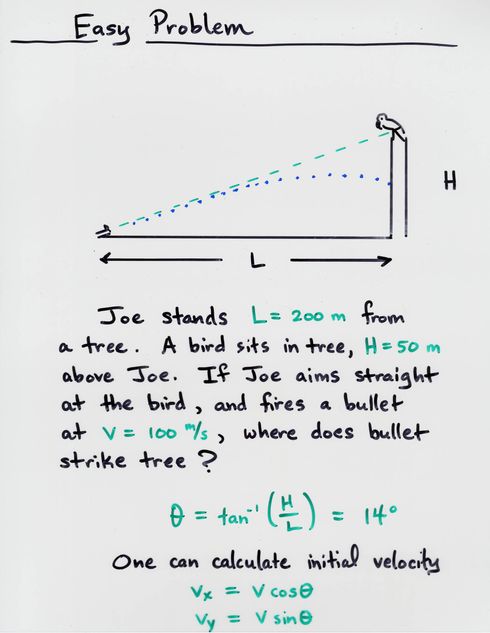 Easy Problem
H
L
Joe stands L = 200 m from
a tree. A bird sits in tree, H = 50 m
above Joe. If Joe aims straight
at the bird, and fires a bullet
at V = 100 m/s, where does bullet
strike tree?
θ = tan⁻¹ (H/L) = 14°
One can calculate initial velocity
Vx = V cosθ
Vy = V sinθ